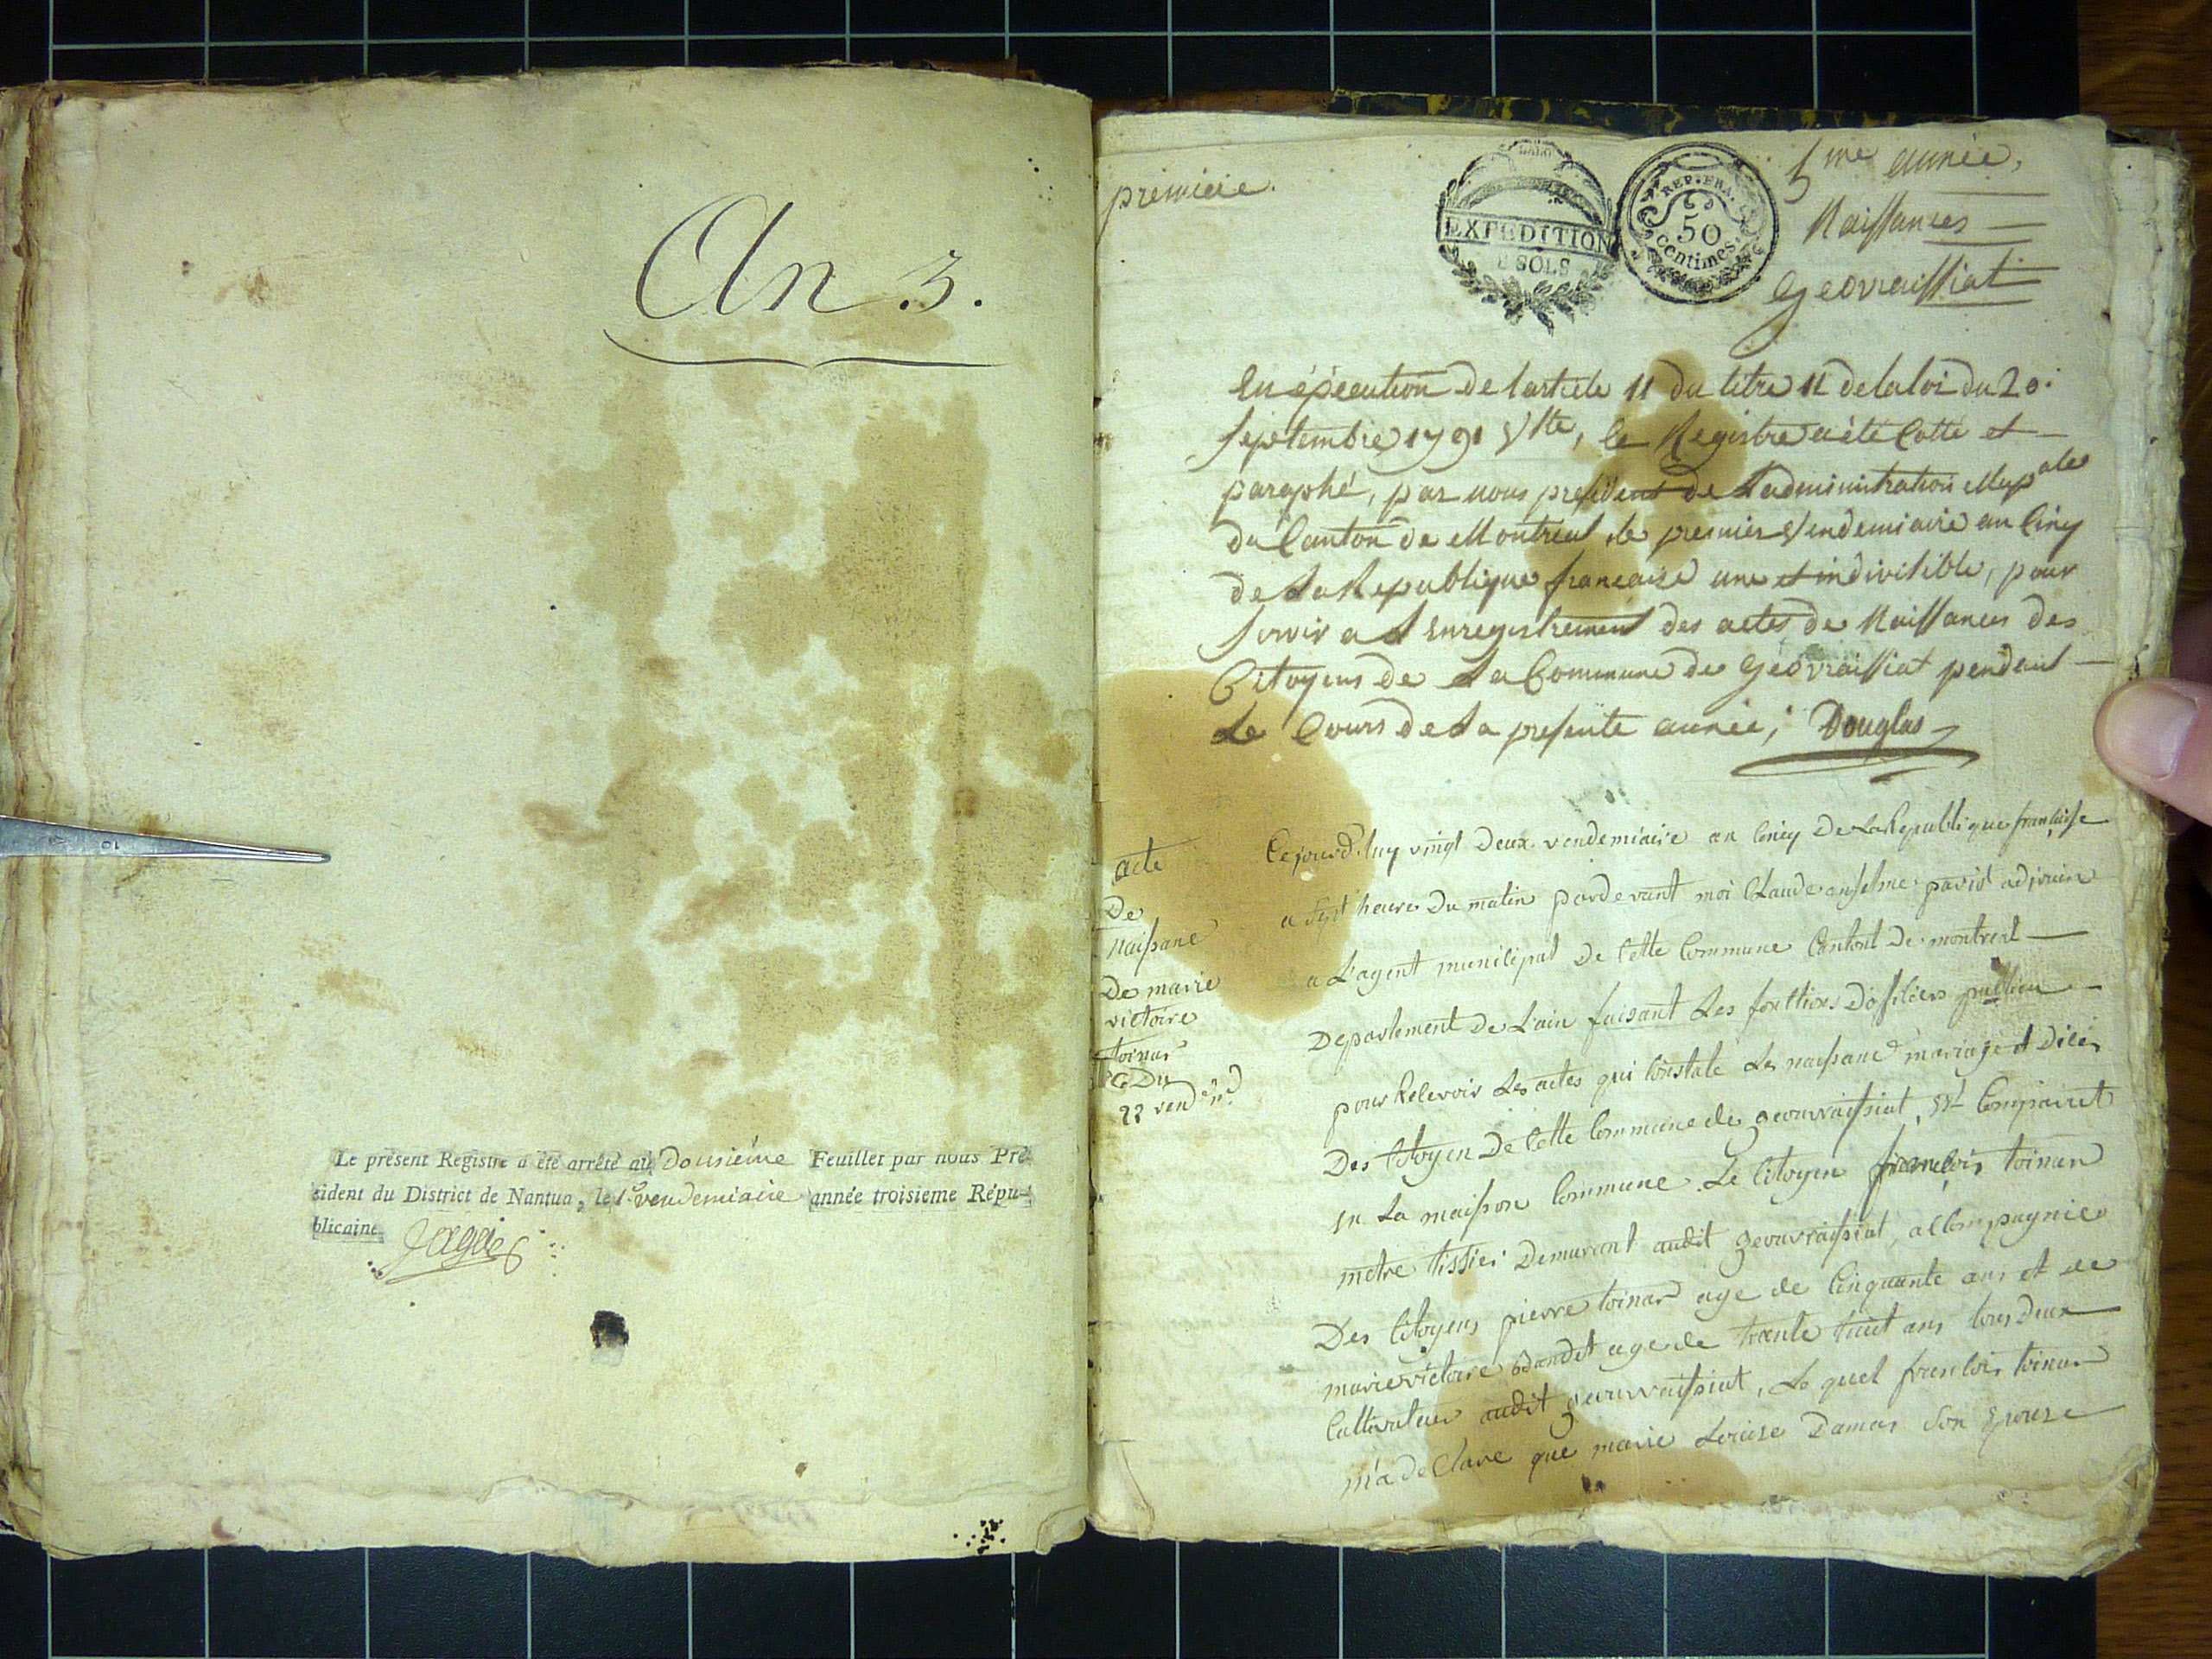 An 3.
Le présent Registre a été arrêté au Dousiéme Feuillet par nous Pré-
sident du District de Nantua, le 1er vendemiaire année troisieme Répu-
blicaine.
premiere.
EXPEDITION
8 SOLS
REP. FRA.
50
centimes
5me année,
Naissances
Geovraissiat
En éxécution de l'article 11 du titre 11 de la loi du 20.
Septembre 1791 Vste, le Registre a été Cotté et
paraphé, par nous president de L'administration Mupale
du Canton de Montreal le premier Vendemiaire an Cinq
de La Republique française une et indivisible, pour
servir a L'Enregistrement des actes de Naissances des
Citoyens de La Commune de Géovraissiat pendant
Le Cours de La presente année; Douglas
acte
De
naissanc
De marie
victoire
toinar
Du
22 vend
Cejourd'huy vingt Deux vendemiaire an Cinq De La Republique française
a sept heure Du matin pardevant moi Claude anselme pavis adjoin
a L'agent municipal De cette Commune Cantont De montreal
Departement De L'ain faisant Les fonctions D'officiers publieu
pour Recevoir Les actes qui constate Les naissance mariage et Décés
Des Citoyen De Cette Commune de geouvraissiat, st Comparut
en La maisson Commune Le Citoyen francois toinar
metre tissier Demurant audit geouvraissiat, accompagnie
Des Citoyens pierre toinar age de Cinquante ans et de
marie victoire age de trante huit ans tous Deux
Cultivateur audit geouvraissiat, Le quel francois toinar
m'a de Clare que marie Louise Damas son Epouse